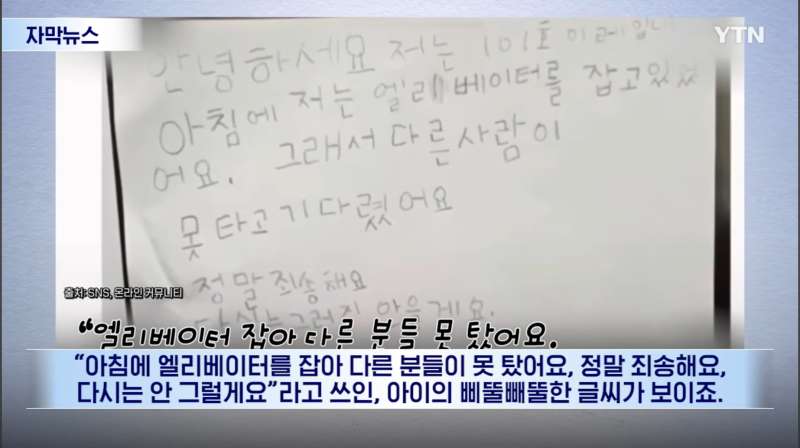 자막뉴스
YTN
안녕하세요 저는 101호
아침에 저는 엘리베이터를 잡고있었
어요. 그래서 다른사람이
못 타고 기다렸어요
정말 죄송해요
출처: SNS, 온라인 커뮤니티
"엘리베이터 잡아 다른 분들 못 탔어요.
"아침에 엘리베이터를 잡아 다른 분들이 못 탔어요, 정말 죄송해요,
다시는 안 그럴게요"라고 쓰인, 아이의 삐뚤빼뚤한 글씨가 보이죠.